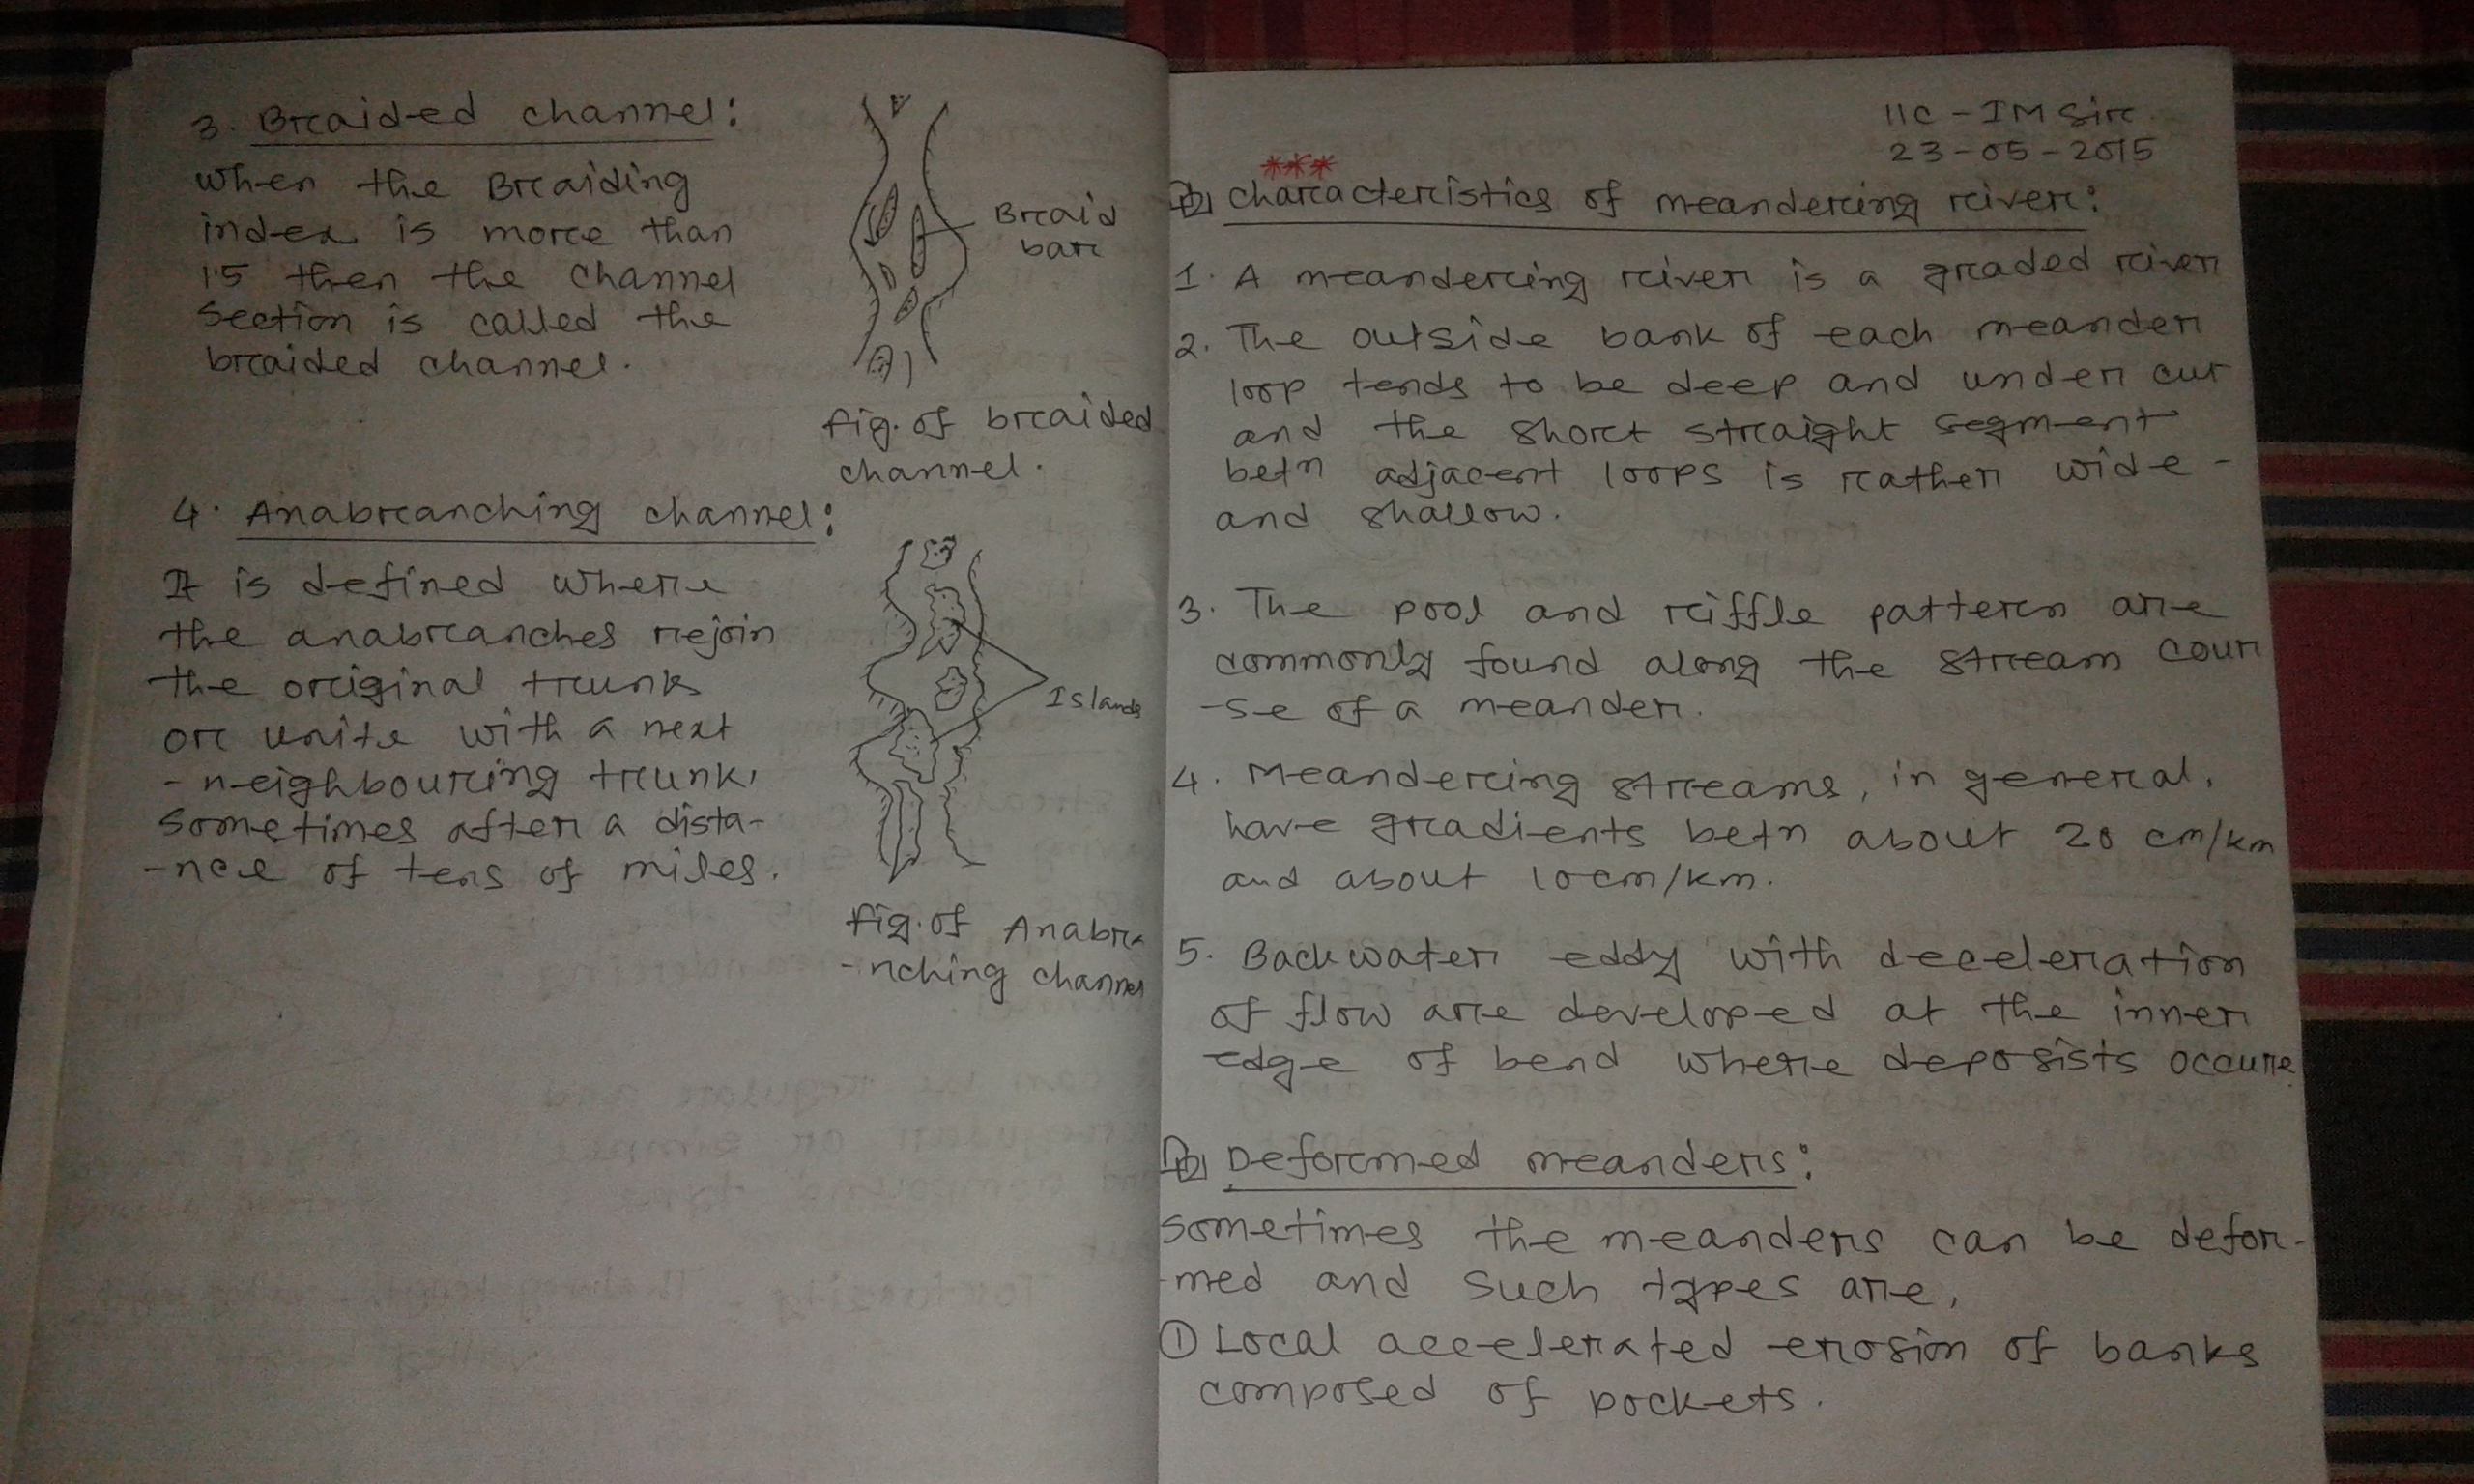 3. Braided channel:
When the Braiding
index is more than
1.5 then the channel
section is called the
braided channel.
Braid
bar
Fig. of braided
channel.
4. Anabranching channel:
It is defined where
the anabranches rejoin
the original trunk
or unite with a next
-neighbouring trunk,
Sometimes after a dista-
-nce of tens of miles.
Islands
Fig. of Anabra
-nching channel
11C - IM Sir
23-05-2015
***
Characteristics of meandering river:
1. A meandering river is a graded river
2. The outside bank of each meander
loop tends to be deep and under cut
and the short straight segment
betn adjacent loops is rather wide -
and shallow.
3. The pool and riffle pattern are
commonly found along the stream cour
-se of a meander.
4. Meandering streams, in general,
have gradients betn about 20 cm/km
and about 10cm/km.
5. Backwater eddy with deceleration
of flow are developed at the inner
edge of bend where deposists occure
Deformed meanders:
Sometimes the meanders can be defor-
-med and such types are,
① Local accelerated erosion of banks
composed of pockets.